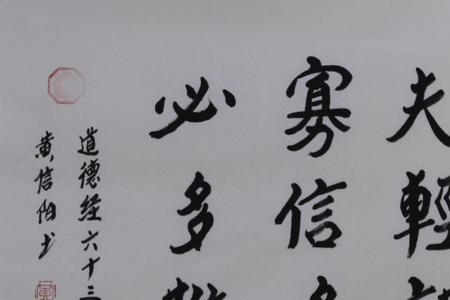 夫輕
寡信
必多
道德经六十三
黄信伯书